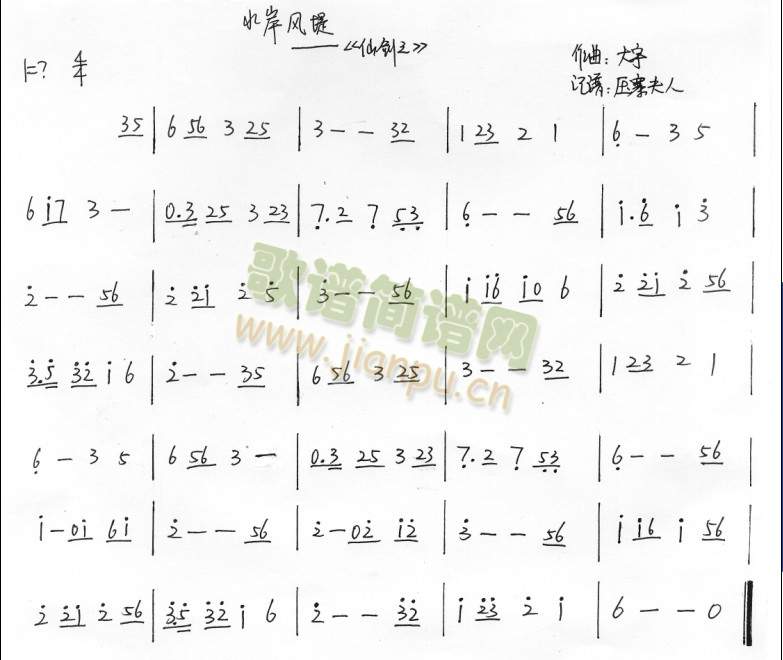 水岸风堤
——《仙剑三》
1=? 4/4
作曲：大宇
记谱：压寨夫人
35 | 6 56 3 25 | 3 - - 32 | 1 23 2 1 | 6̣ - 3 5 |
6 i̇7 3 - | 0.3 25 3 23 | 7̣.2 7̣ 5̣3̣ | 6̣ - - 56 | i̇.6̇ i̇ 3̇ |
2̇ - - 56 | 2̇ 2̇i̇ 2̇ 5̇ | 3̇ - - 56 | i̇ i̇6 i̇0 6 | 2̇ 2̇i̇ 2̇ 56 |
3̇.5̇ 3̇2̇ i̇ 6 | 2̇ - - 35 | 6 56 3 25 | 3 - - 32 | 1 23 2 1 |
6̣ - 3 5 | 6 56 3 - | 0.3 25 3 23 | 7̣.2 7̣ 5̣3̣ | 6̣ - - 56 |
i̇ - 0i̇ 6i̇ | 2̇ - - 56 | 2̇ - 02̇ i̇2̇ | 3̇ - - 56 | i̇ i̇6 i̇ 56 |
2̇ 2̇i̇ 2̇ 56 | 3̇.5̇ 3̇2̇ i̇ 6 | 2̇ - - 3̇2̇ | i̇ 2̇3̇ 2̇ i̇ | 6 - - 0 ‖
歌谱简谱网
www.jianpu.cn